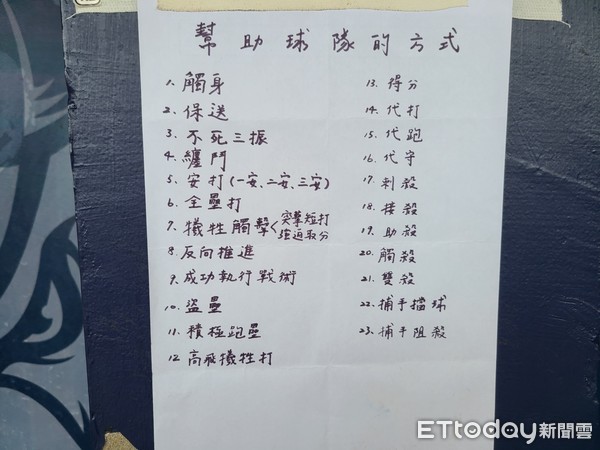 幫助球隊的方式
1. 觸身
2. 保送
3. 不死三振
4. 纏鬥
5. 安打(一安、二安、三安)
6. 全壘打
7. 犧牲觸擊<突擊短打
強迫取分
8. 反向推進
9. 成功執行戰術
10. 盜壘
11. 積極跑壘
12 高飛犧牲打
13. 得分
14. 代打
15. 代跑
16. 代守
17. 刺殺
18. 接殺
19. 助殺
20. 觸殺
21. 雙殺
22. 捕手擋球
23. 捕手阻殺
ETtoday新聞雲